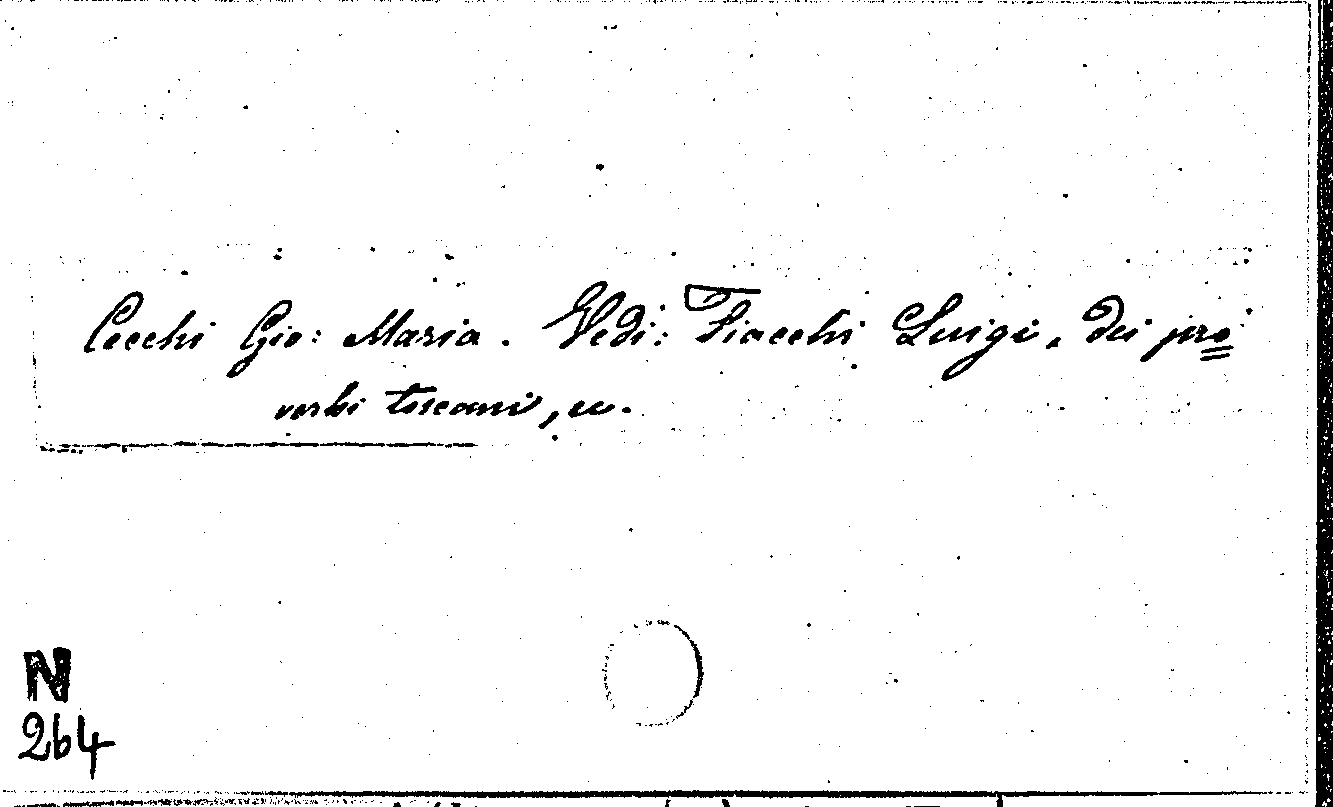 Cecchi Gio: Maria. Vedi: Fiacchi Luigi, Dei pro=
verbi toscani, ec.
N
264